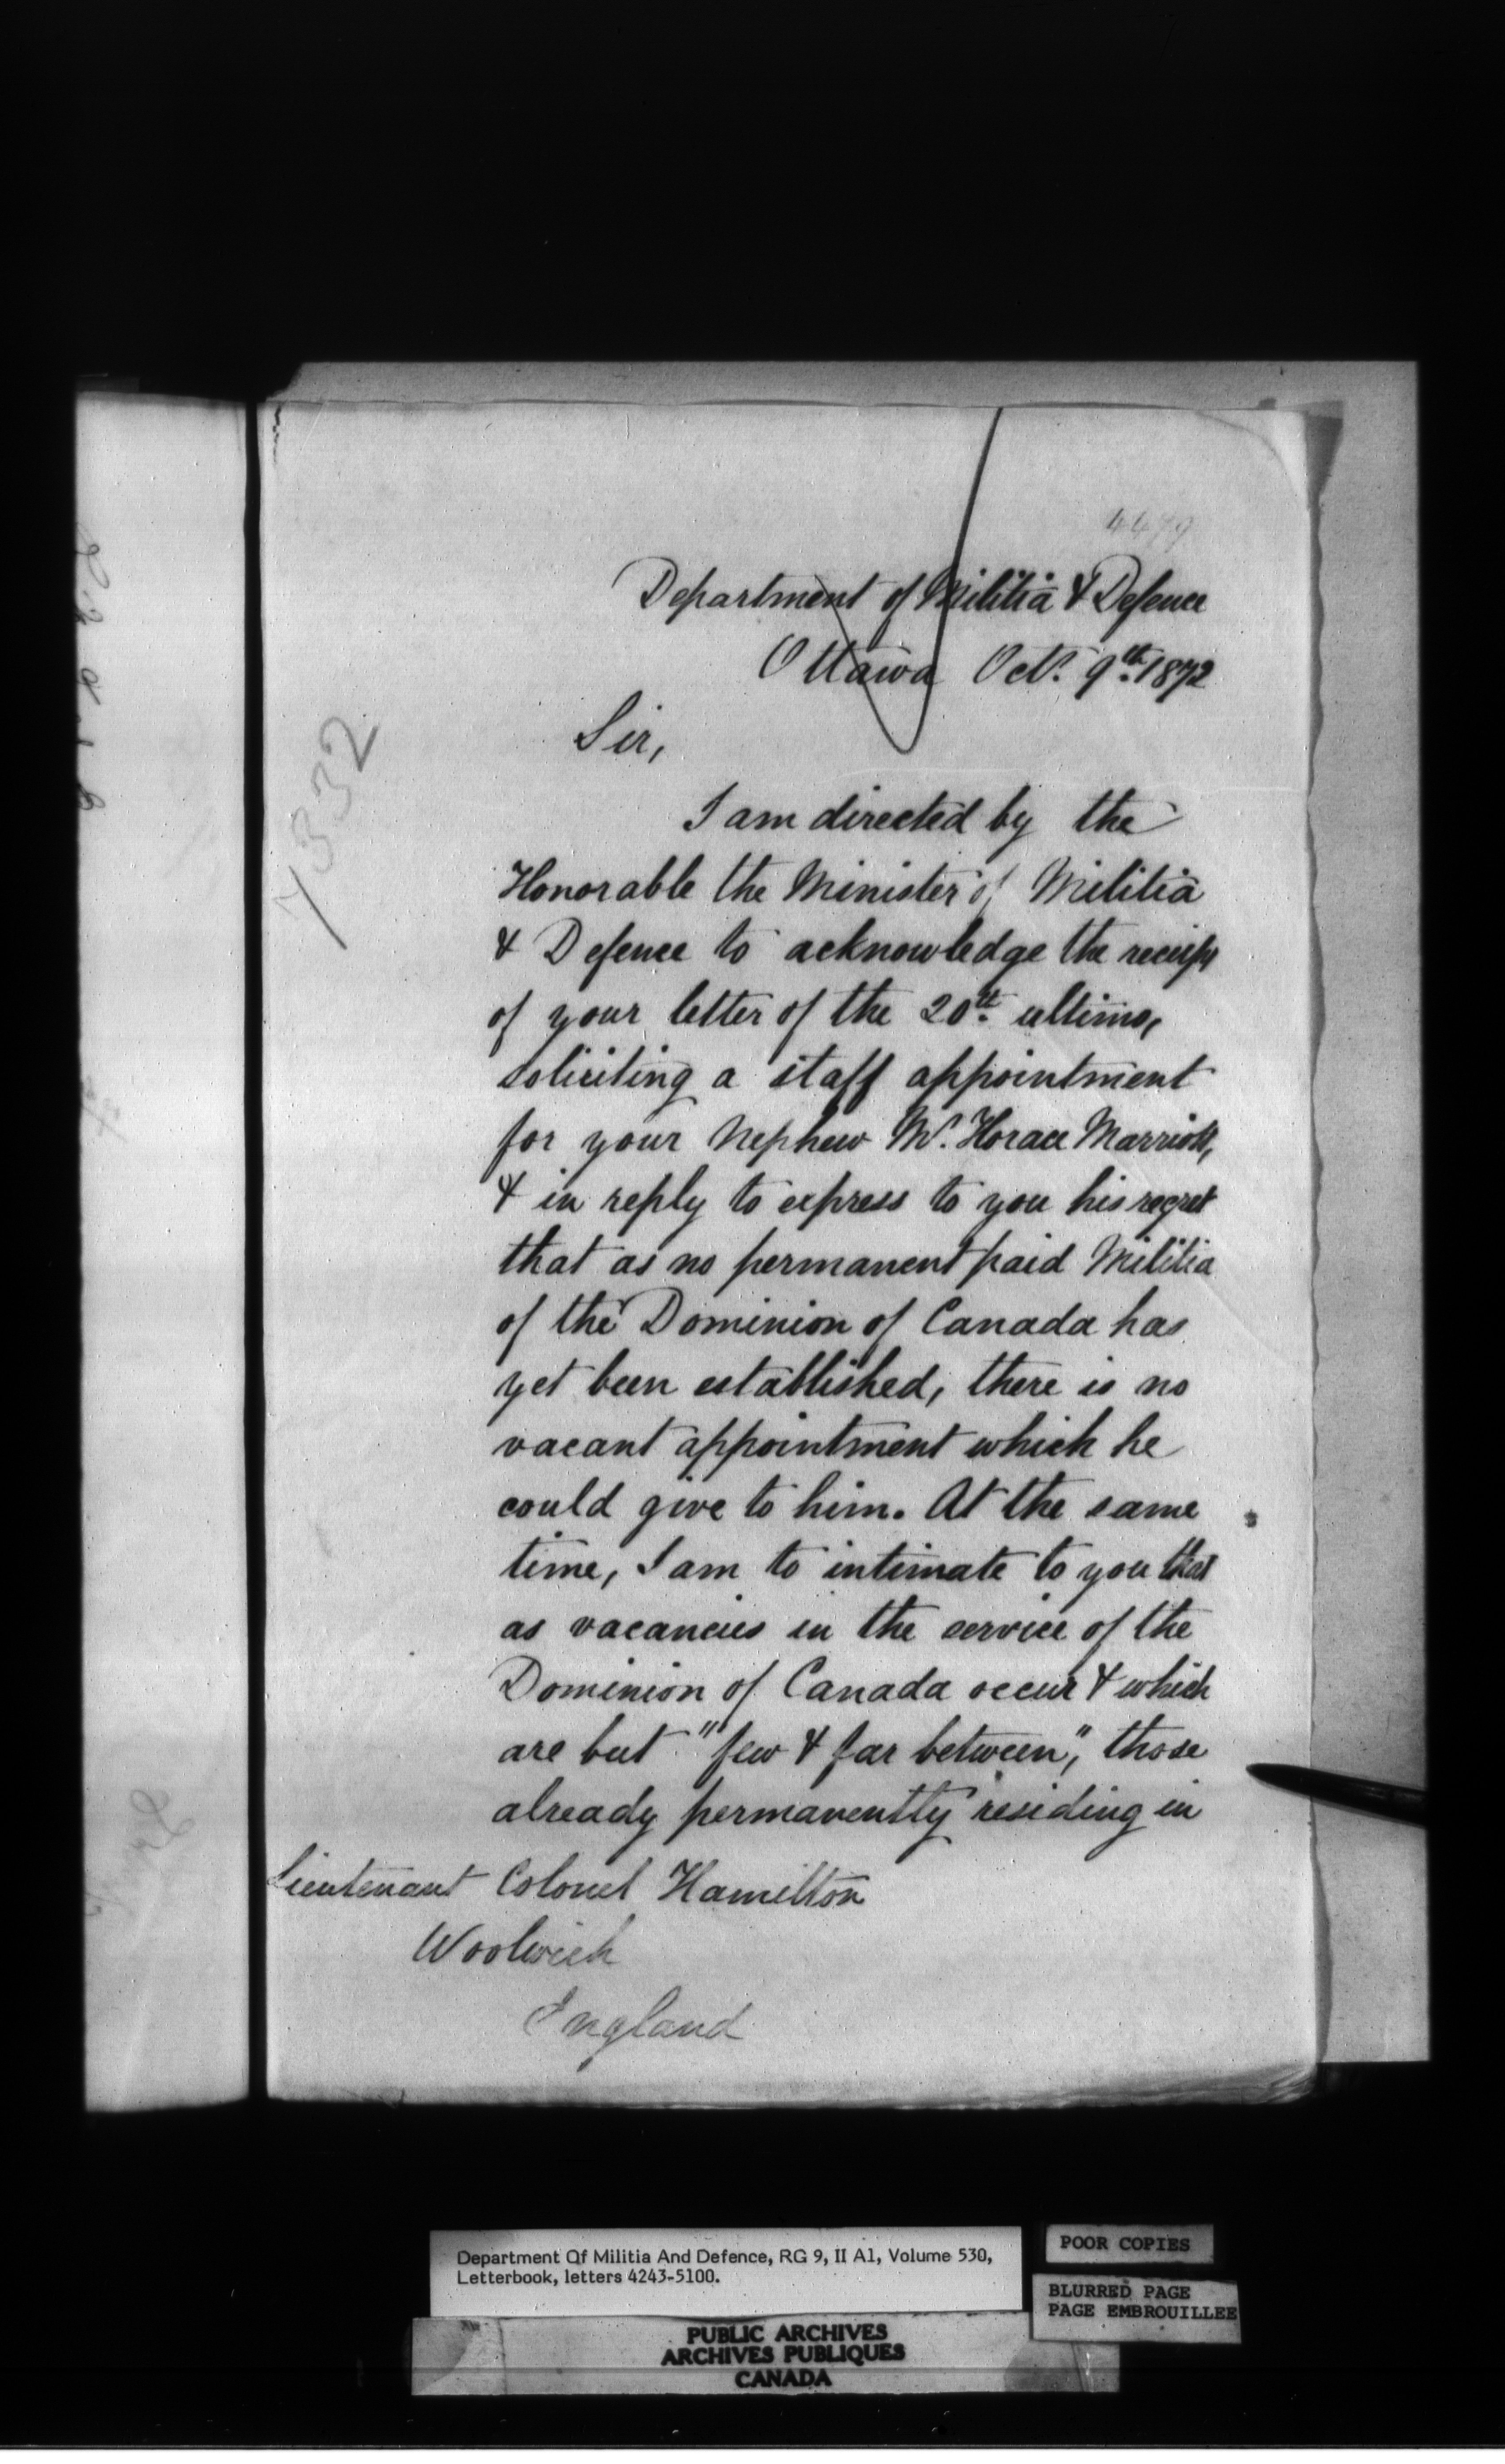 Department of Militia & Defence
Ottawa Oct. 9th. 1872
7332
Sir,
I am directed by the
Honorable the Minister of Militia
& Defence to acknowledge the receipt
of your letter of the 20th. ultimo,
soliciting a staff appointment
for your Nephew Mr. Horace Marriott,
& in reply to express to you his regret
that as no permanent paid Militia
of the Dominion of Canada has
yet been established, there is no
vacant appointment which he
could give to him. At the same
time, I am to intimate to you that
as vacancies in the service of the
Dominion of Canada occur & which
are but "few & far between", those
already permanently residing in
Lieutenant Colonel Hamilton
Woolwich
England
Department Of Militia And Defence, RG 9, II A1, Volume 530,
Letterbook, letters 4243-5100.
POOR COPIES
BLURRED PAGE
PAGE EMBROUILLEE
PUBLIC ARCHIVES
ARCHIVES PUBLIQUES
CANADA